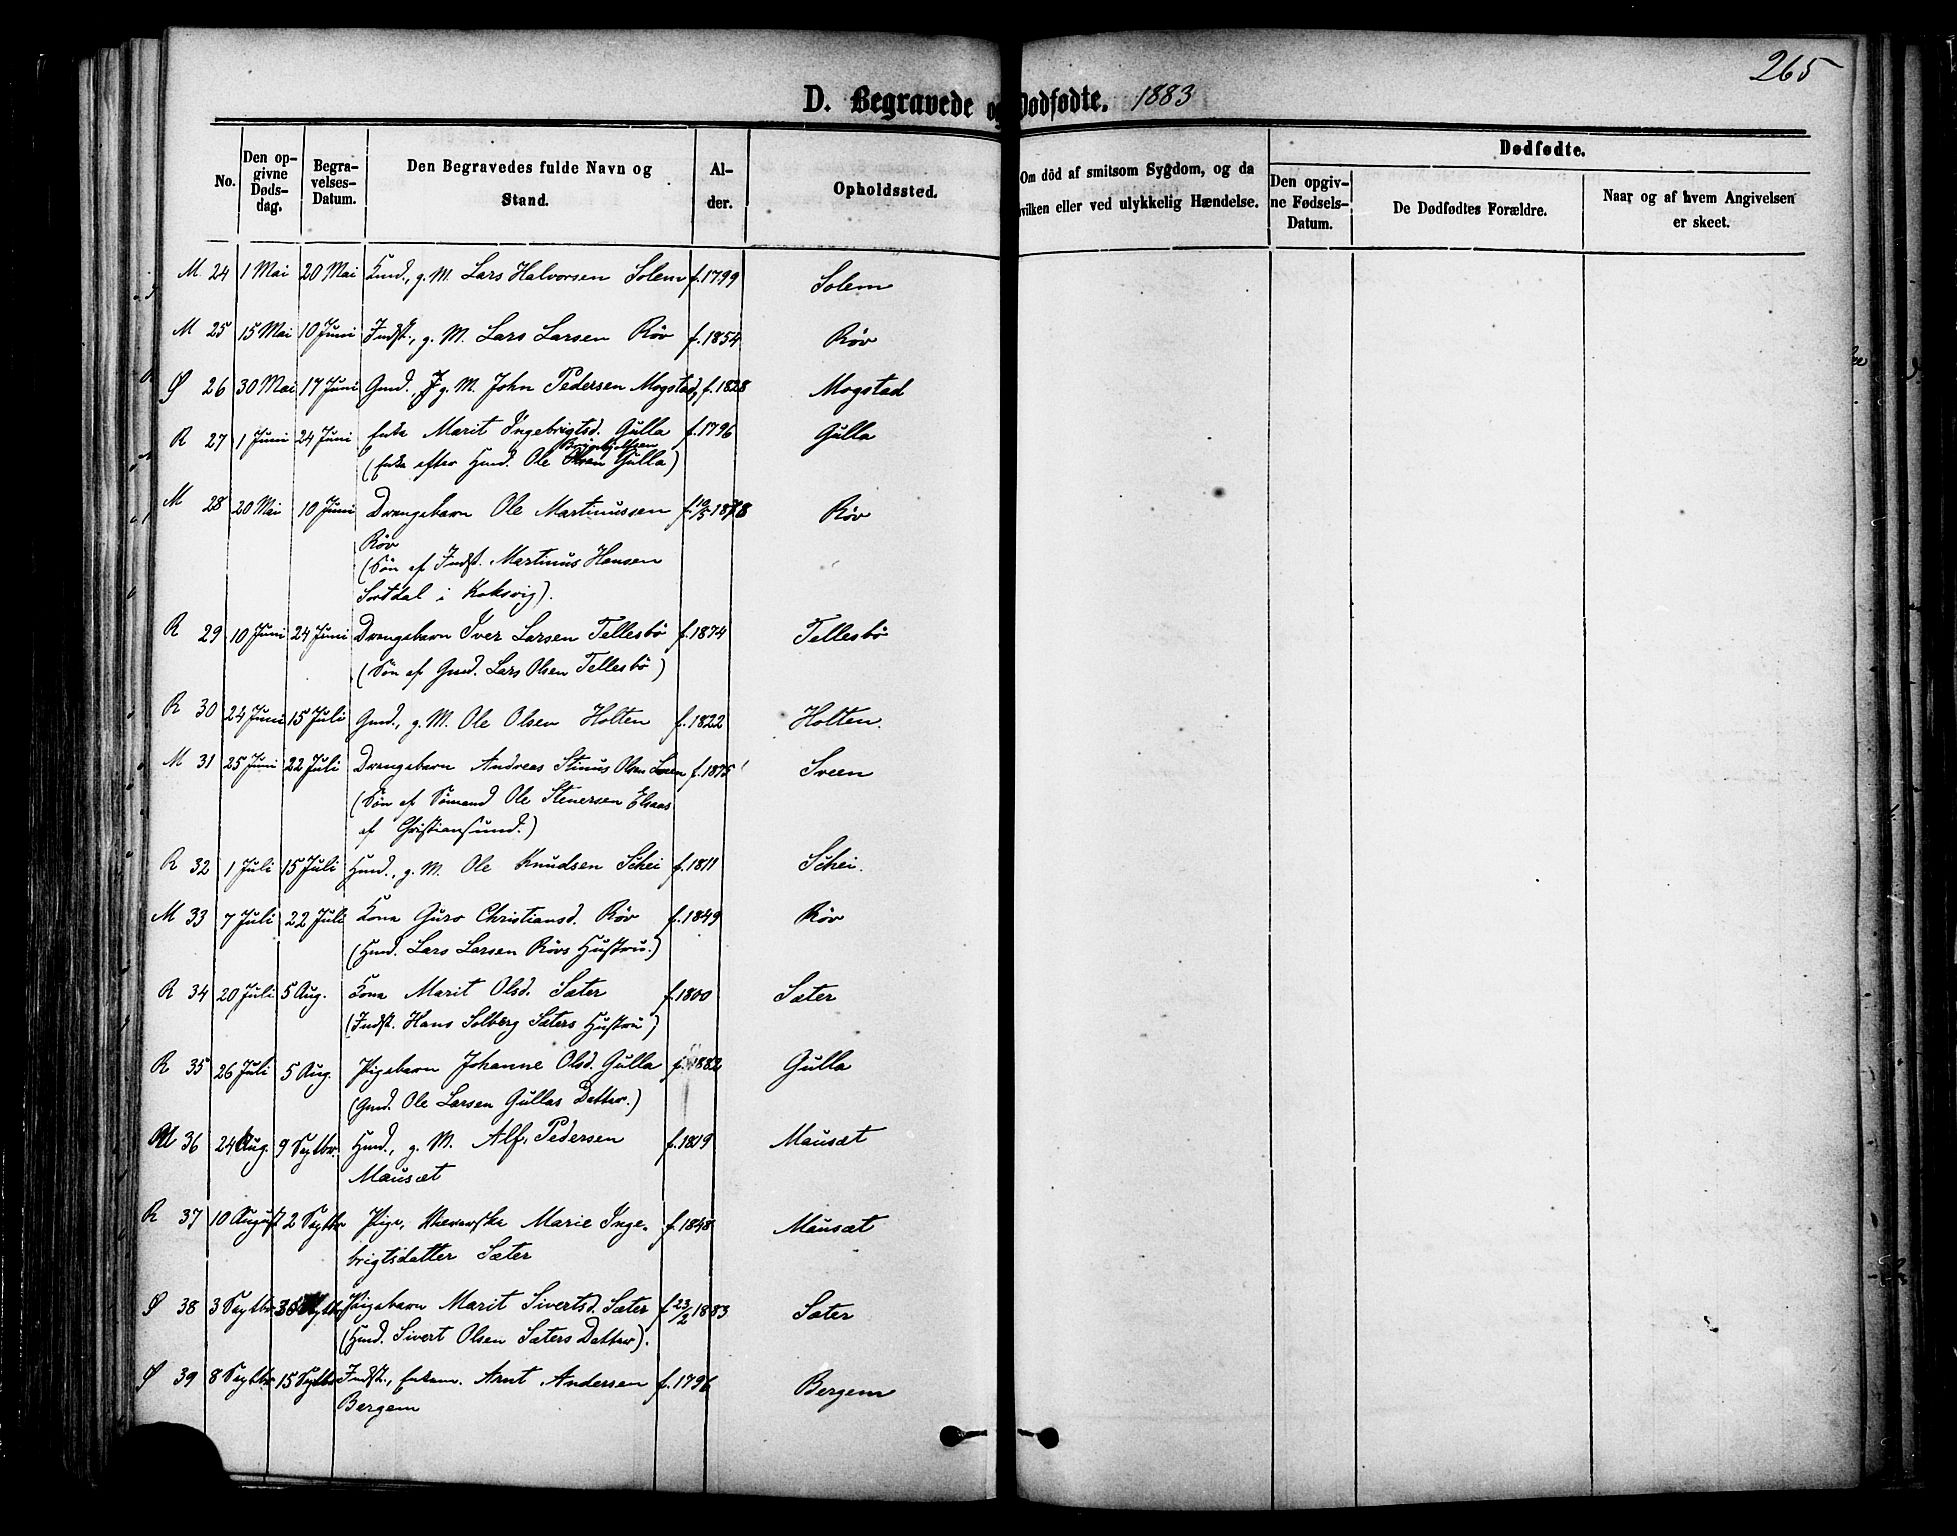 265
D. Begravede og Dødfødte. 1883
No. Den opgivne Dødsdag. Begravelses-Datum. Den Begravedes fulde Navn og Stand. Alder. Opholdssted. Om död af smitsom Sygdom, og da hvilken eller ved ulykkelig Hændelse. Dødfødte.
Den opgivne Fødsels-Datum. De Dødfødtes Forældre. Naar og af hvem Angivelsen er skeet.
M 24 1 Mai 20 Mai Kmd., g. M. Lars Halvorsen Solem f. 1799 Solem
M 25 15 Mai 10 Juni Indst., g. M. Lars Larsen Röv f. 1854 Röv
Ø 26 30 Mai 17 Juni Gmd. g. M. John Pedersen Mogstad, f. 1828 Mogstad
R 27 1 Juni 24 Juni Enke Marit Ingebrigtsd. Gulla f. 1796 Gulla
(Enke efter Hmd. Ole Gulla)
M 28 20 Mai 10 Juni Drengebarn Ole Martinussen f. 10/5 1878 Röv
Röv
(Sön af Indst. Martinus Hansen
Sortdal i Koksvig).
R 29 10 Juni 24 Juni Drengebarn Iver Larsen Tellesbö f. 1874 Tellesbö
(Sön af Gmd. Lars Olsen Tellesbö)
R 30 24 Juni 15 Juli Gmd., g. M. Ole Olsen Holten f. 1822 Holten.
M 31 25 Juni 22 Juli Drengebarn Andreas Stinus Olsen Sveen f. 1875 Sveen
(Sön af Sömand Ole Stenersen
af Christiansund.)
R 32 1 Juli 15 Juli Hmd., g. M. Ole Knudsen Schei f. 1811 Schei.
M 33 7 Juli 22 Juli Kona Guro Christiansd. Röv f. 1849 Röv
(Hmd. Lars Larsen Rövs Hustru.)
R 34 20 Juli 5 Aug. Kona Marit Olsd. Sæter f. 1800 Sæter
(Indst. Hans Solberg Sæters Hustru)
R 35 26 Juli 5 Aug. Pigebarn Johanne Olsd. Gulla f. 1882 Gulla
(Gmd. Ole Larsen Gullas Datter.)
M 36 24 Aug. 9 Septbr. Hmd., g. M. Alf Pedersen f. 1819 Mausæt
Mausæt
R 37 10 August 2 Septbr Pige, Marie Inge- f. 1848 Mausæt
brigtsdatter Sæter
Ø 38 3 Septbr 30 Septbr Pigebarn Marit Sivertsd. Sæter f. 23/2 1883 Sæter
(Hmd. Sivert Olsen Sæters Datter).
Ø 39 8 Septbr 15 Septbr Indst., Enkem. Arnt Andersen f. 1796 Bergem
Bergem